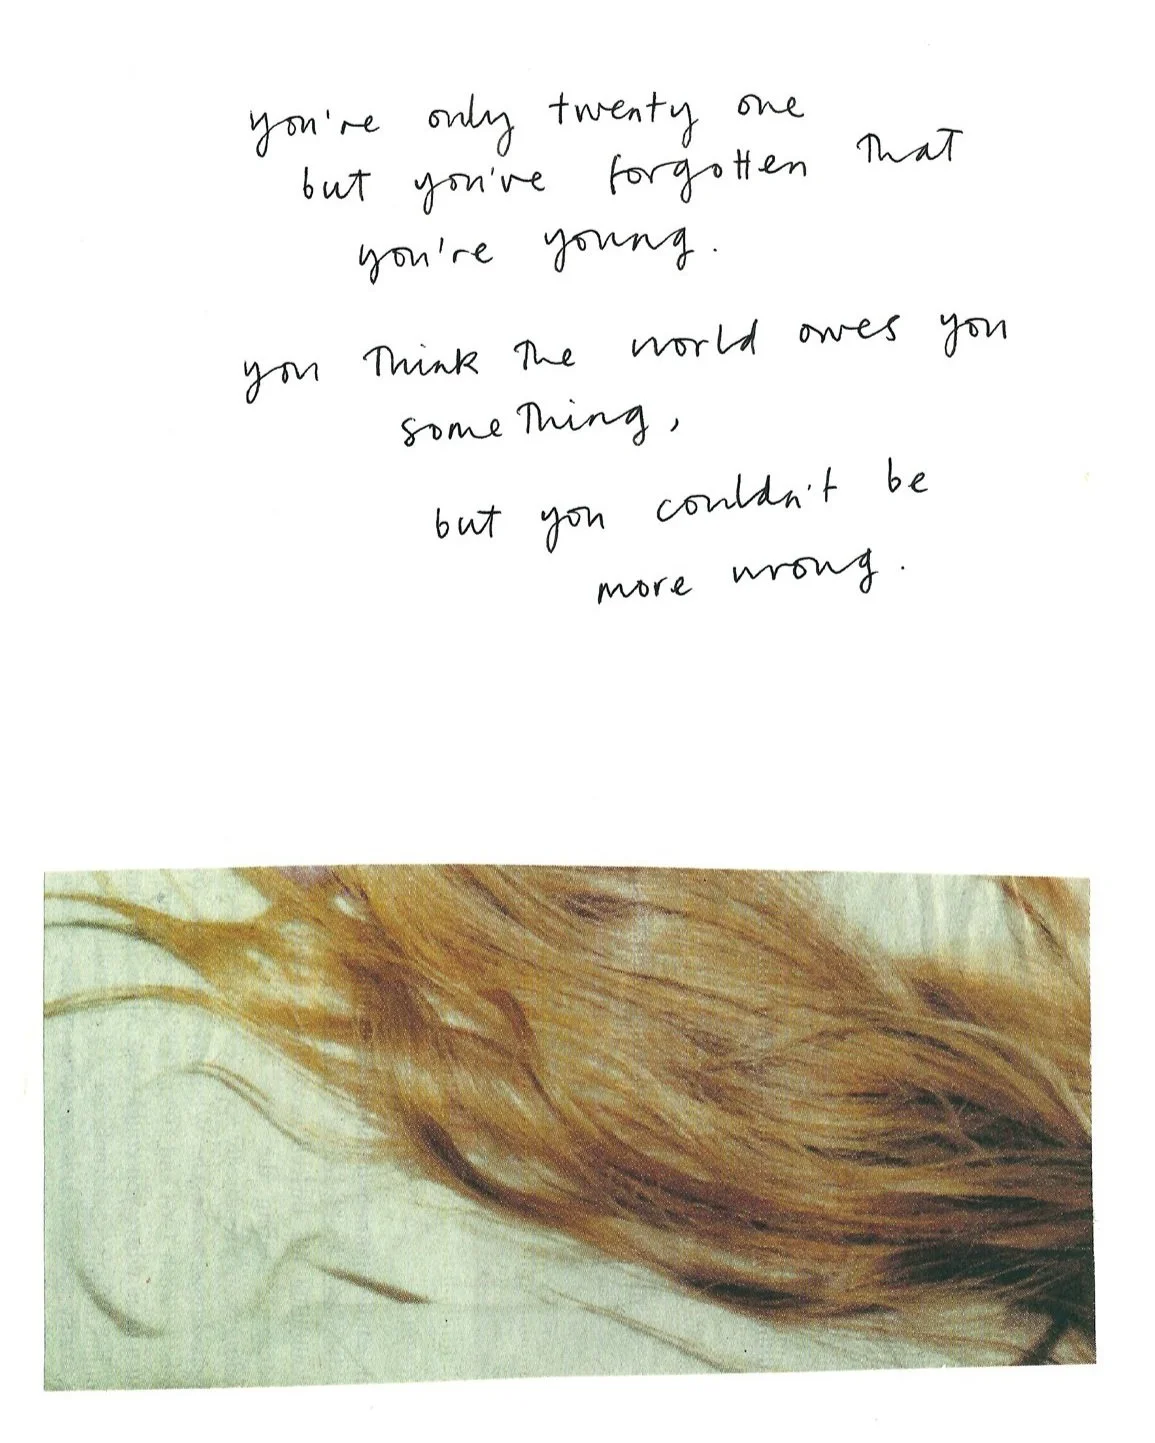 you're only twenty one
but you've forgotten that
you're young.
you think the world owes you
something,
but you couldn't be
more wrong.